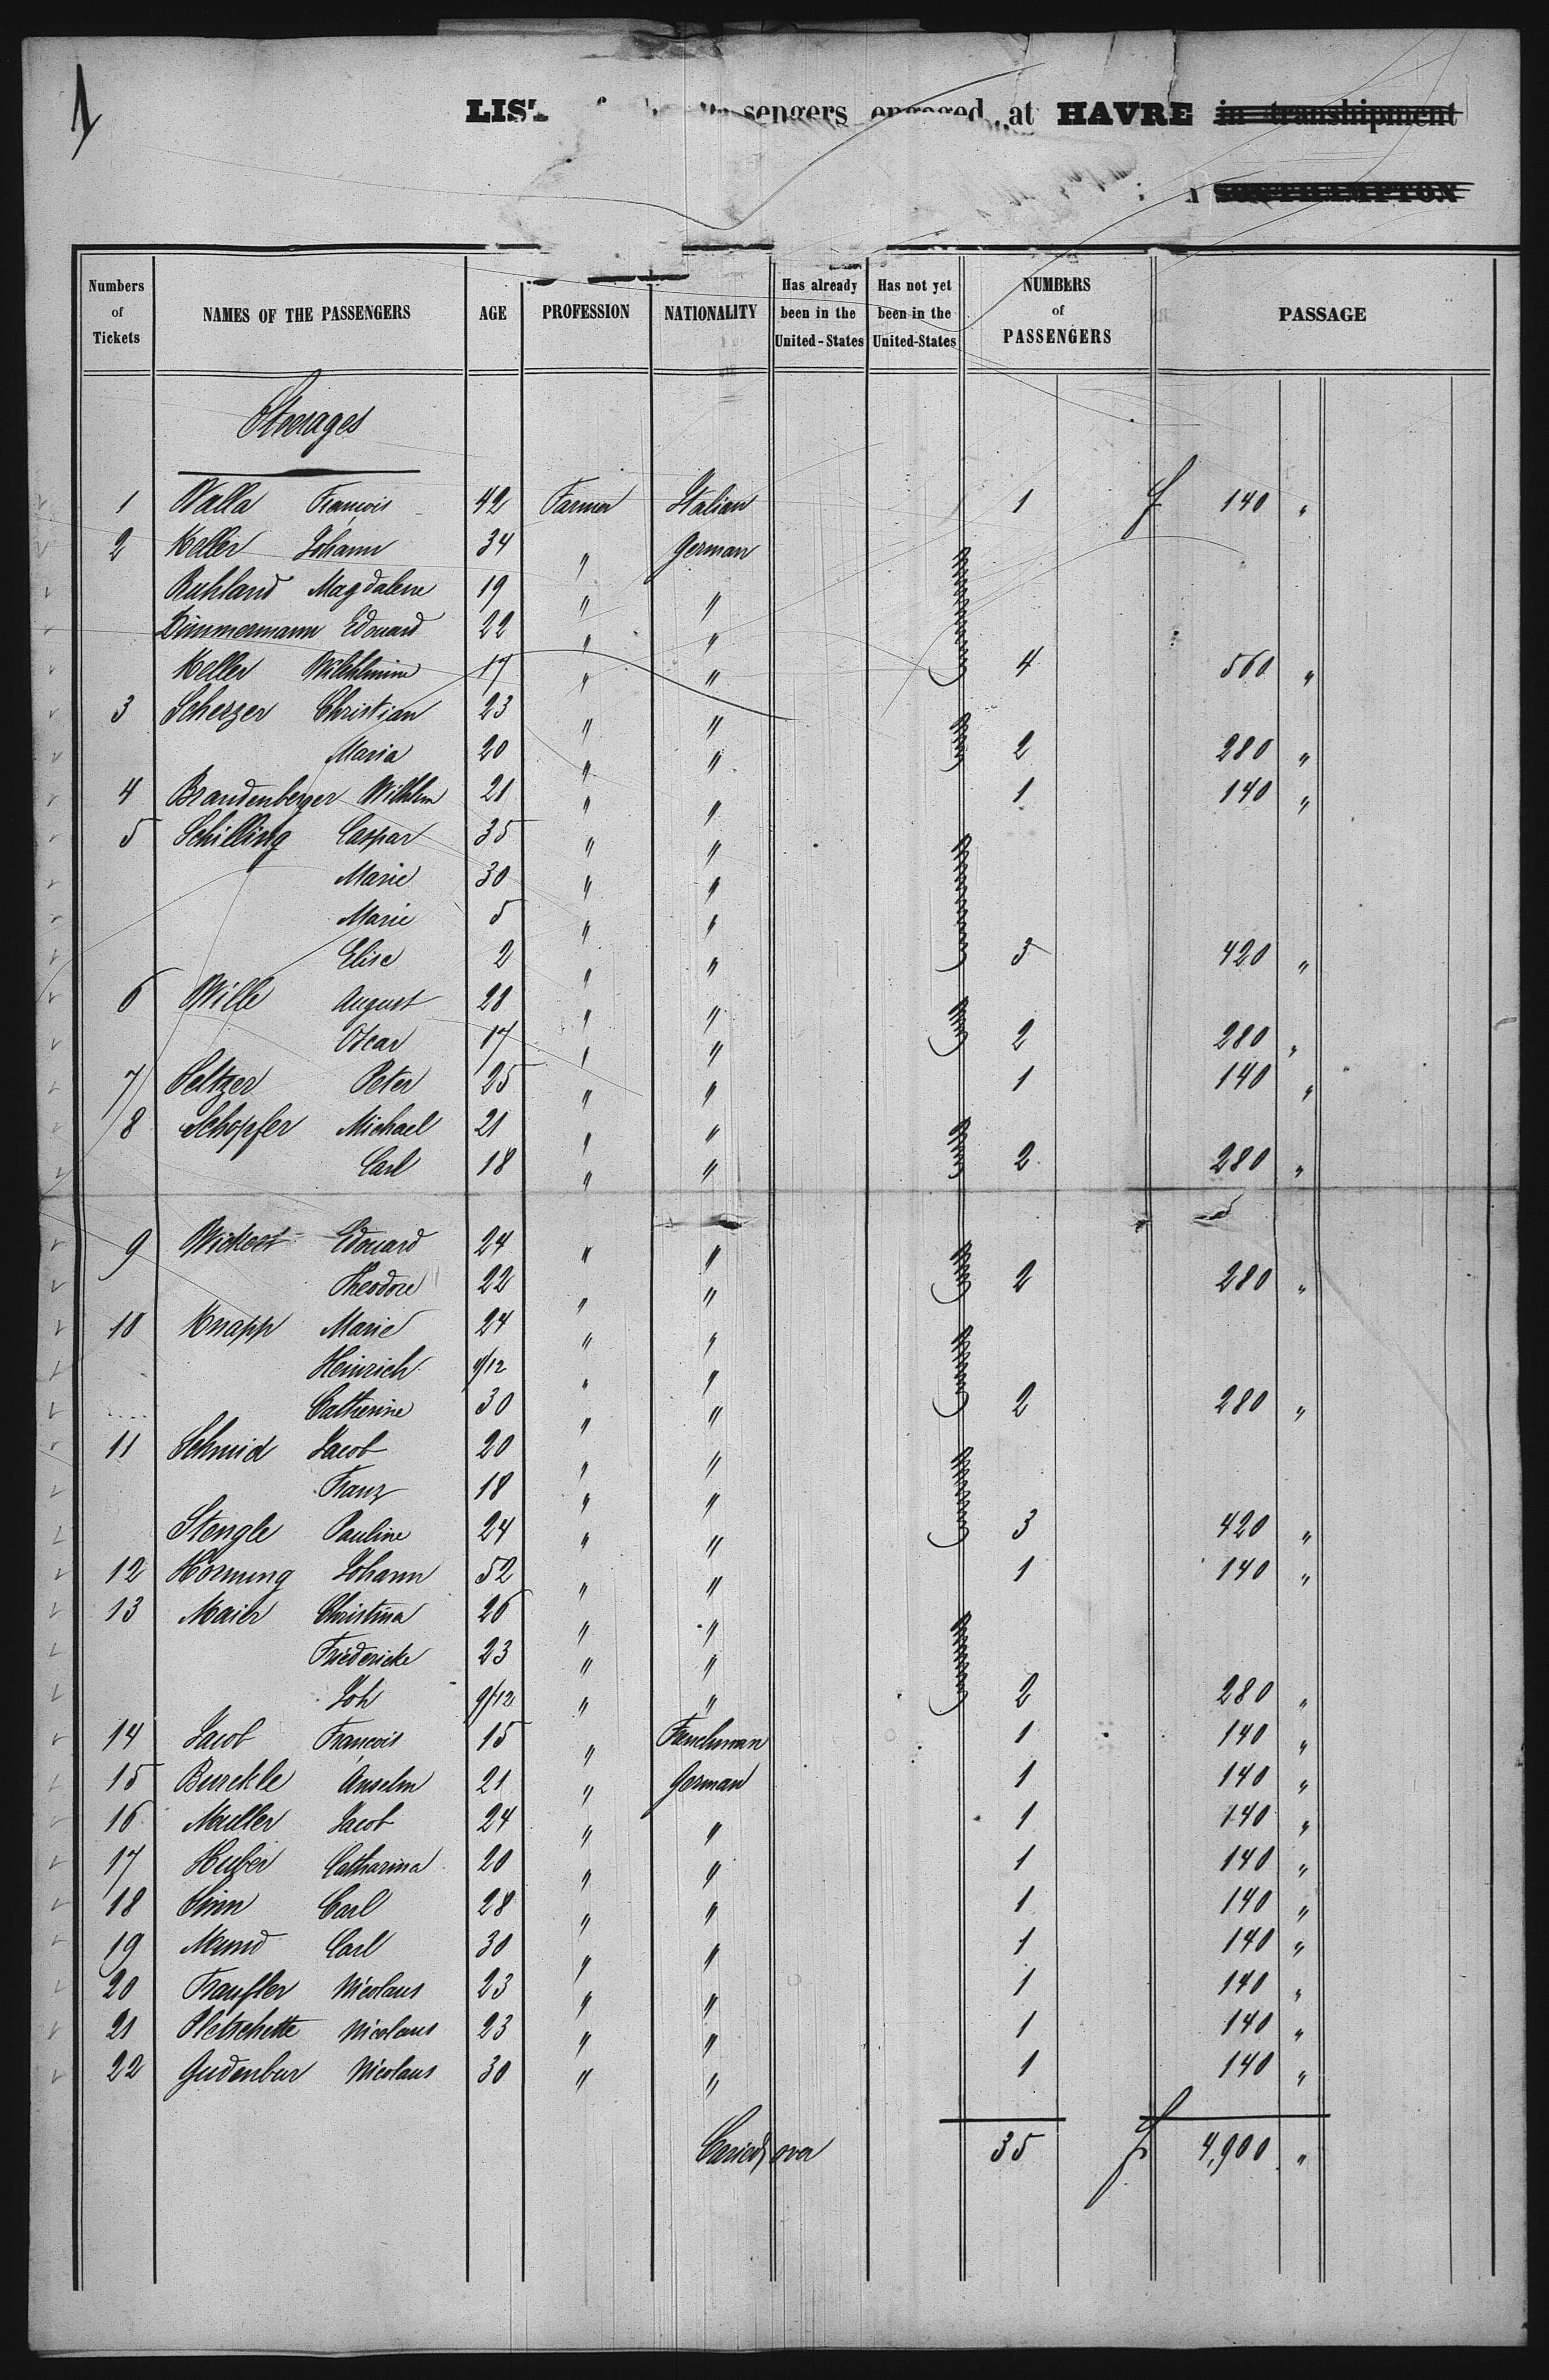 1
LIS
sengers engaged at HAVRE in transhipment
SOUTHAMPTON
Numbers of Tickets | NAMES OF THE PASSENGERS | AGE | PROFESSION | NATIONALITY | Has already been in the United-States | Has not yet been in the United-States | NUMBERS of PASSENGERS | PASSAGE
Steerages
1 Walla François 42 Farmer Italian 1 f 140 "
2 Keller Johann 34 " German
Ruhland Magdalene 19 " "
Zimmermann Edouard 22 " "
Keller Wilhelmine 17 " " 4 560 "
3 Scherzer Christian 23 " "
Maria 20 " " 2 280 "
4 Brandenberger Wilhlm 21 " " 1 140 "
5 Schilling Caspar 35 " "
Marie 30 " "
Marie 5 " "
Elise 2 " " 3 420 "
6 Wille August 28 " "
Oscar 17 " " 2 280 "
7 Seltzer Peter 25 " " 1 140 "
8 Schopfer Michael 21 " "
Carl 18 " " 2 280 "
9 Wickert Edouard 24 " "
Theodore 22 " " 2 280 "
10 Knapp Marie 24 " "
Heinrich 9/12 " "
Catherine 30 " " 2 280 "
11 Schmid Jacob 20 " "
Franz 18 " "
Stengle Pauline 24 " " 3 420 "
12 Hornung Johann 52 " " 1 140 "
13 Maier Christina 26 " "
Friedericke 23 " "
Joh 9/12 " " 2 280 "
14 Jacob François 15 " Frenchman 1 140 "
15 Burckle Anselm 21 " German 1 140 "
16 Muller Jacob 24 " " 1 140 "
17 Huber Catharina 20 " " 1 140 "
18 Sinn Carl 28 " " 1 140 "
19 Mund Carl 30 " " 1 140 "
20 Traufler Nicolaus 23 " " 1 140 "
21 Pletschette Nicolaus 23 " " 1 140 "
22 Gudenbur Nicolaus 30 " " 1 140 "
Caried over 35 f 4,900 "